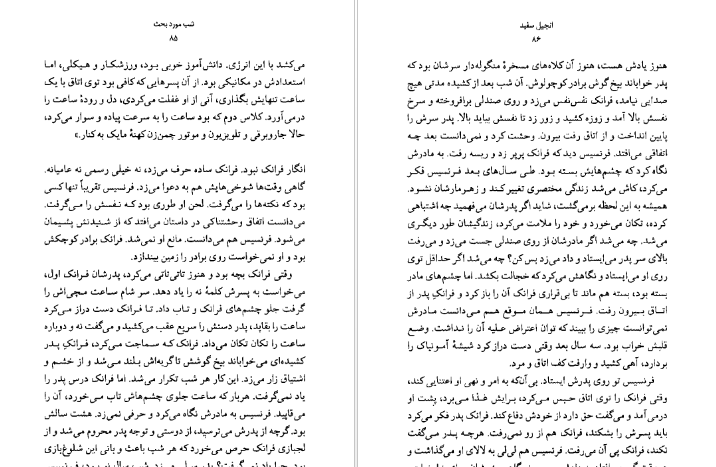 شب مورد بحث
۸۵
می‌کشد با این انرژی. دانش‌آموز خوبی بود، ورزشکار و هیکلی، اما
استعدادش در مکانیکی بود. از آن پسرهایی که کافی بود توی اتاق با یک
ساعت تنهایش بگذاری، آنی از او غفلت می‌کردی، دل و رودهٔ ساعت را
درمی‌آورد. کلاس دوم که بود ساعت را به سرعت پیاده و سوار می‌کرد،
حالا جاروبرقی و تلویزیون و موتور چمن‌زن کهنهٔ مایک به کنار.»
انگار فرانک نبود. فرانک ساده حرف می‌زد، نه خیلی رسمی نه عامیانه.
گاهی وقت‌ها شوخی‌هایش هم به دعوا می‌زد. فرنسیس تقریباً تنها کسی
بود که نکته‌ها را می‌گرفت. لحن او طوری بود که نفسش را می‌گرفت.
می‌دانست اتفاق وحشتناکی در داستان می‌افتد که از شنیدنش پشیمان
می‌شود. فرنسیس هم می‌دانست. مانع او نمی‌شد. فرانک برادر کوچکش
بود و او نمی‌خواست روی برادر را زمین بیندازد.
وقتی فرانک بچه بود و هنوز تاتی‌تاتی می‌کرد، پدرشان فرانک اول،
می‌خواست به پسرش کلمهٔ نه را یاد دهد. سر شام ساعت مچی‌اش را
گرفت جلو چشم‌های فرانک و تاب داد. تا فرانک دست دراز می‌کرد
ساعت را بقاپد، پدر دستش را سریع عقب می‌کشید و می‌گفت نه و دوباره
ساعت را تکان تکان می‌داد. فرانک که سماجت می‌کرد، فرانکِ پدر
کشیده‌ای می‌خواباند بیخ گوشش تا گریه‌اش بلند می‌شد و از خشم و
اشتیاق زار می‌زد. این کار هر شب تکرار می‌شد. اما فرانک درس پدر را
یاد نمی‌گرفت. هربار که ساعت جلوی چشم‌هاش تاب می‌خورد، آن را
می‌قاپید. فرنسیس به مادرش نگاه می‌کرد و حرفی نمی‌زد. هشت سالش
بود. گرچه از پدرش می‌ترسید، از دوستی و توجه پدر محروم می‌شد و از
لجبازی فرانک حرص می‌خورد که هر شب باعث و بانی این شلوغ‌بازی
انجیل سفید
۸۶
هنوز یادش هست، هنوز آن کلاه‌های مسخرهٔ منگوله‌دار سرشان بود که
پدر خواباند بیخ گوش برادر کوچولوش. آن شب بعد از کشیده مدتی هیچ
صدایی نیامد، فرانک نفس‌نفس می‌زد و روی صندلی برافروخته و سرخ
نفسش بالا آمد و زوزه کشید و زور زد تا نفسش بیاید بالا. پدر سرش را
پایین انداخت و از اتاق رفت بیرون. وحشت کرد و نمی‌دانست بعد چه
اتفاقی می‌افتد. فرنسیس دید که فرانک پرپر زد و ریسه رفت. به مادرش
نگاه کرد که چشم‌هایش بسته بود. طی سال‌های بعد فرنسیس فکر
می‌کرد، کاش می‌شد زندگی مختصری تغییر کند و زهرمارشان نشود.
همیشه به این لحظه برمی‌گشت، شاید اگر پدرشان می‌فهمید چه اشتباهی
کرده، تکان می‌خورد و خود را ملامت می‌کرد، زندگیشان طور دیگری
می‌شد. چه می‌شد اگر مادرشان از روی صندلی جست می‌زد و می‌رفت
بالای سر پدر می‌ایستاد و داد می‌زد پس کن؟ چه می‌شد؟ اگر حداقل توی
روی او می‌ایستاد و نگاهش می‌کرد که خجالت بکشد. اما چشم‌های مادر
بسته بود، بسته هم ماند تا بی‌قراری فرانک آن را باز کرد و فرانکِ پدر از
اتاق بیرون رفت. فرنسیس همان موقع هم می‌دانست مادرش
نمی‌توانست چیزی را ببیند که توان اعتراض علیه آن را نداشت. وضع
قلبش خراب بود. سه سال بعد وقتی دست دراز کرد شیشهٔ آمونیاک را
بردارد، آهی کشید و وارفت کف اتاق و مرد.
فرنسیس تو روی پدرش ایستاد. بی‌آن‌که به امر و نهی او اعتنایی کند،
وقتی فرانک را توی اتاق حبس می‌کرد، برایش غذا می‌برد، پشت او
درمی‌آمد و می‌گفت حق دارد از خودش دفاع کند. فرانک پدر فکر می‌کرد
باید پسرش را بشکند، فرانک هم از رو نمی‌رفت. هرچه پدر می‌گفت
نکند، فرانک پی آن می‌رفت. فرنسیس هم لی‌لی به لالای او می‌گذاشت و